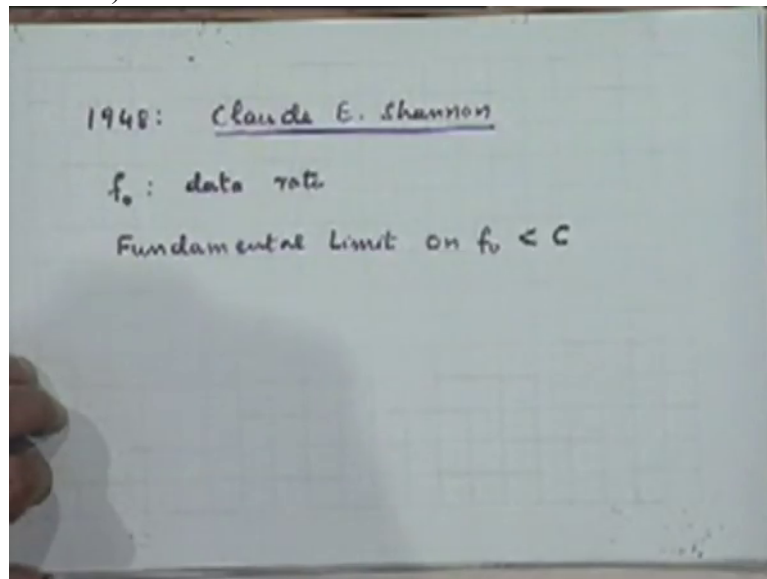 1948: Claude E. Shannon
f₀: data rate
Fundamental Limit on f₀ < C